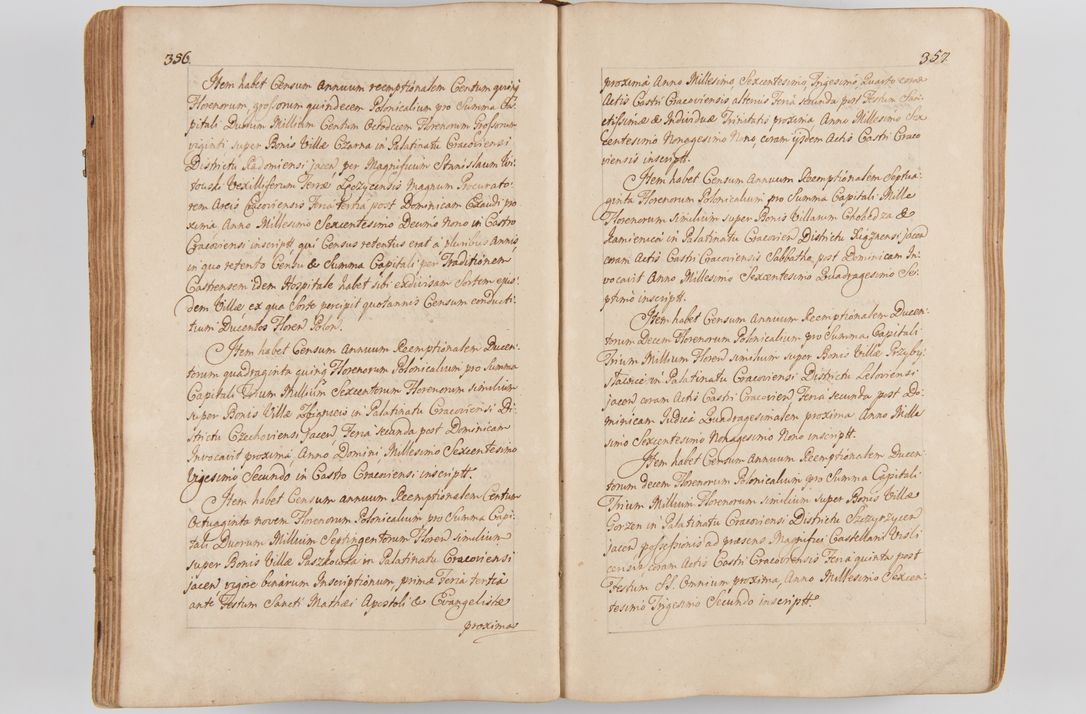 356.
Item habet Censum Annuum reemptionalem Centum quinq
Florenorum, grossorum quindecem Polonicalium pro Summa Ca-
pitali Duorum Millium Centum Octodecem Florenorum Grossorum
viginti super Bonis Villæ Czarna in Palatinatu Cracoviensi
Districtu Radomiensi jacen, per Magnificum Stanislaum Wi-
towski Vexilliferum Terræ Lęczycensis Magnum Procurato-
rem Arcis Cracoviensis Feria tertia post Dominicam Exaudi pro-
xima, Anno Millesimo Sexcentesimo Decimo Nono in Castro
Cracoviensi inscriptt, qui Census retentus erat a pluribus Annis
in quo retento Censu & Summa Capitali per Traditionem
Castrensem idem Hospitale habet sibi exdivisam Sortem ejus-
dem Villæ ex qua Sorte percipit quotannis Censum conducti-
tium Ducentos Floren Polon.
Item habet Censum Annuum Reemptionalem Ducen-
torum quadraginta quinq Florenorum Polonicalium pro Summa
Capitali Trium Millium Sexcentorum Florenorum similium
super Bonis Villæ in Palatinatu Cracoviensi Di-
strictu Czechoviensi jacen, Feria secunda post Dominicam
Invocavit proxima Anno Domini Millesimo Sexcentesimo
Vigesimo Secundo in Castro Cracoviensi inscriptt.
Item habet Censum annuum Reemptionalem Centum
Octuaginta novem Florenorum Polonicalium pro Summa Capi-
tali Duorum Millium Septingentorum Floren similium
super Bonis Villæ Paszkowka in Palatinatu Cracoviensi
jacen, vigore binarum Inscriptionum, prima Feria tertia
ante Festum Sancti Mathæi Apostoli & Evangelistæ
proximas
357.
proxima Anno Millesimo, Sexcentesimo, Trigesimo, Quarto coram
Actis Castri Cracoviensis, alternis Feria secunda post Festum San-
ctissimæ & Individuæ Trinitatis proxima Anno Millesimo Sex
centesimo Nonagesimo Nono, coram ijsdem Actis Castri Craco
viensis inscriptt.
Item habet Censum Annuum Reemptionalem Septua-
ginta Florenorum Polonicalium pro Summa Capitali Mille
Florenorum similium super Bonis Villarum &
Kamienica in Palatinatu Cracovien Districtu jacen
coram Actis Castri Cracoviensis Sabbatho, post Dominicam In-
vocavit Anno Millesimo Sexcentesimo Quadragesimo Se-
ptimo inscriptt.
Item habet Censum Annuum Reemptionalem Ducen-
torum Decem Florenorum Polonicalium pro Summa Capitali
Trium Millium Floren similium super Bonis Villæ Przyby-
slaince in Palatinatu Cracoviensi Districtu Leloviensi
jacen coram Actis Castri Cracovien Feria secunda post Do-
minicam Judica Quadragesimalem proxima Anno Mille
simo Sexcentesimo Nonagesimo Nono inscriptt.
Item habet Censum Annuum Reemptionalem Ducen-
torum decem Florenorum Polonicalium pro Summa Capitali
Trium Millium Florenorum similium super Bonis Villæ
Gorzen in Palatinatu Cracoviensi Districtu Szczyrzycen
jacen possessionis ad præsens Magnifici Castellani Visli
censis coram Actis Castri Cracoviensis Feria quinta post
Festum SS. Omnium proxima, Anno Millesimo Sexcen-
tesimo Trigesimo Secundo inscriptt.